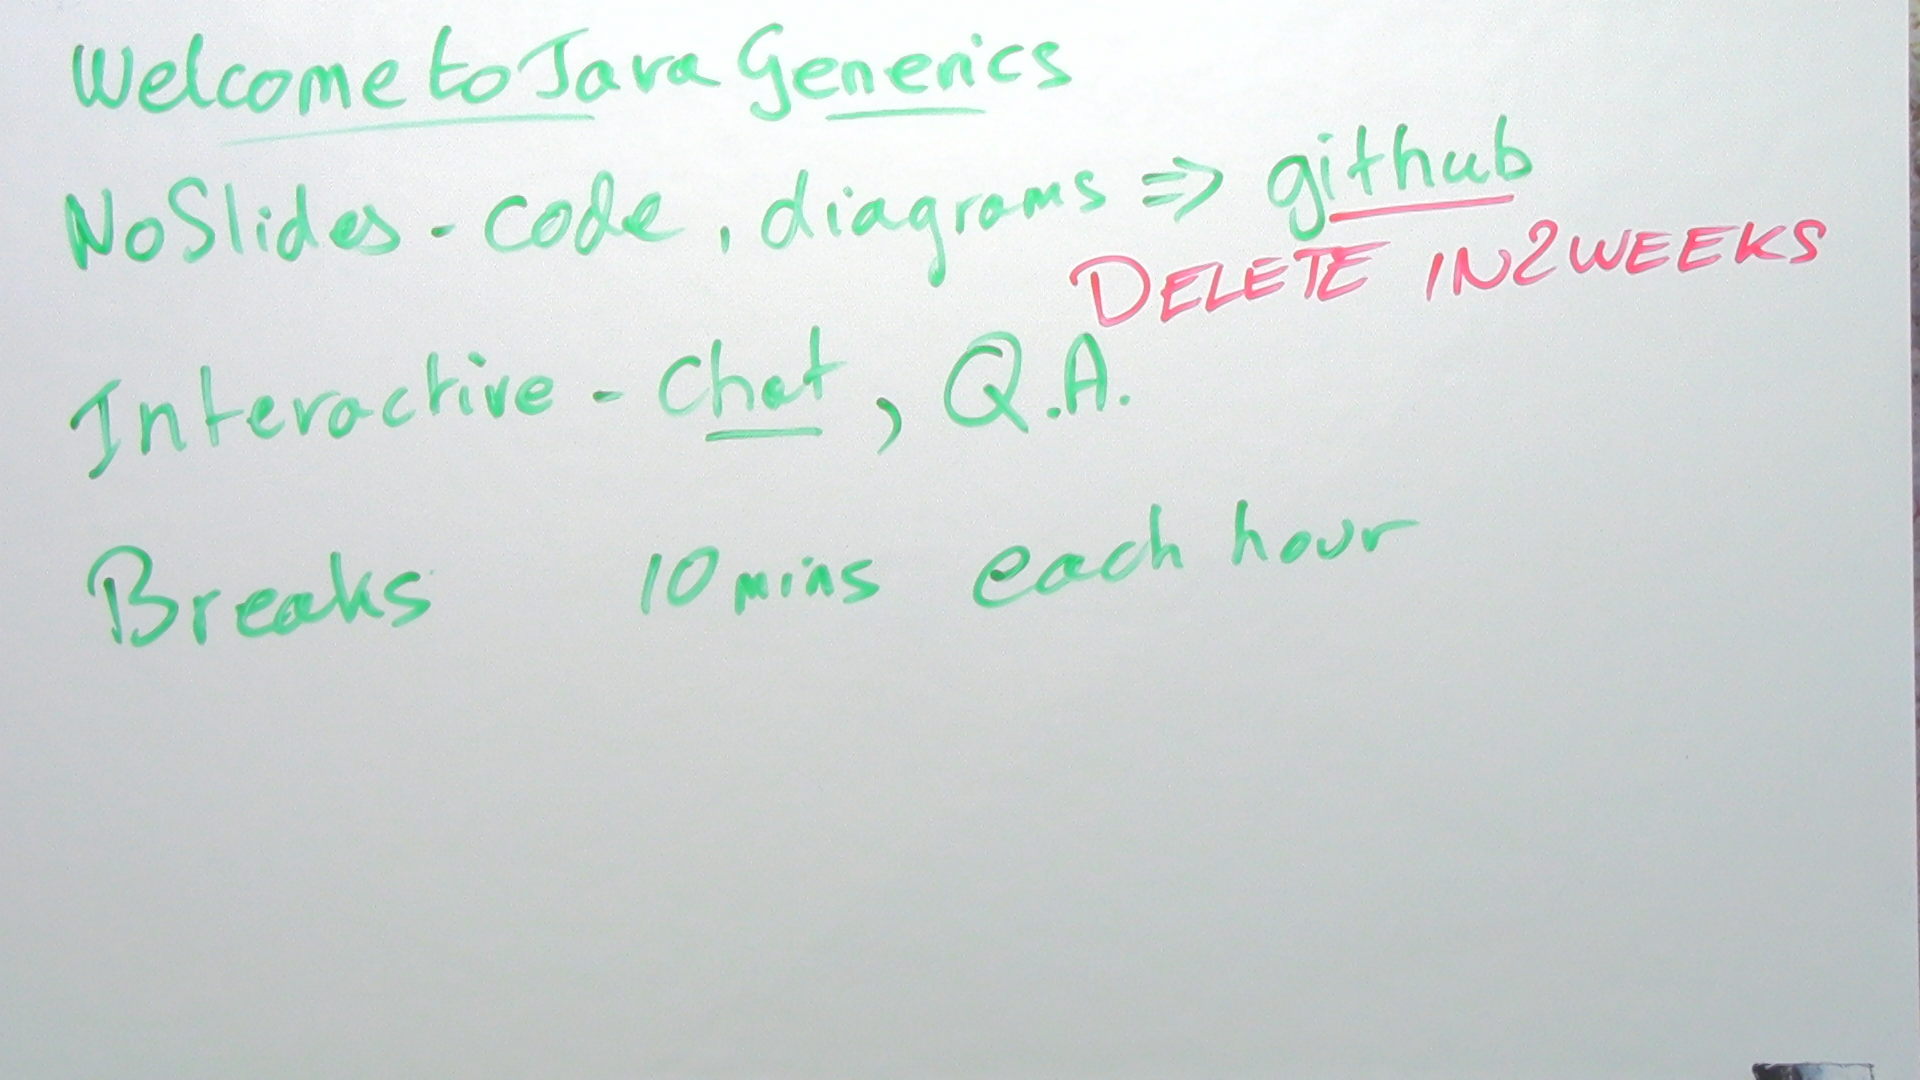 Welcome to Java Generics
No Slides - code, diagrams ⇒ github
DELETE IN 2 WEEKS
Interactive - Chat, Q.A.
Breaks 10 mins each hour